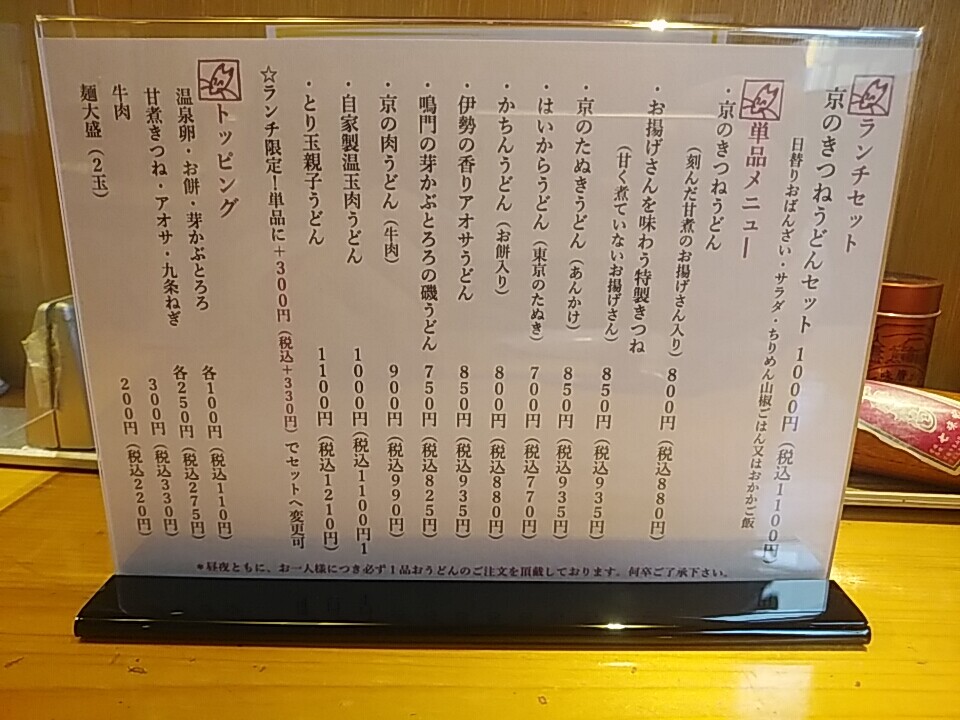 ランチセット
京のきつねうどんセット 1000円(税込1100円)
日替りおばんざい・サラダ・ちりめん山椒ごはん又はおかかご飯
単品メニュー
・京のきつねうどん
(刻んだ甘煮のお揚げさん入り) 800円(税込880円)
・お揚げさんを味わう特製きつね
(甘く煮ていないお揚げさん) 850円(税込935円)
・京のたぬきうどん(あんかけ) 850円(税込935円)
・はいからうどん(東京のたぬき) 700円(税込770円)
・かちんうどん(お餅入り) 800円(税込880円)
・伊勢の香りアオサうどん 850円(税込935円)
・鳴門の芽かぶとろろの磯うどん 750円(税込825円)
・京の肉うどん(牛肉) 900円(税込990円)
・自家製温玉肉うどん 1000円(税込1100円1
・とり玉親子うどん 1100円(税込1210円)
☆ランチ限定!単品に+300円(税込+330円)でセットへ変更可
トッピング
温泉卵・お餅・芽かぶとろろ 各100円(税込110円)
甘煮きつね・アオサ・九条ねぎ 各250円(税込275円)
牛肉 300円(税込330円)
麺大盛(2玉) 200円(税込220円)
*昼夜ともに、お一人様につき必ず1品おうどんのご注文を頂戴しております。何卒ご了承下さい。